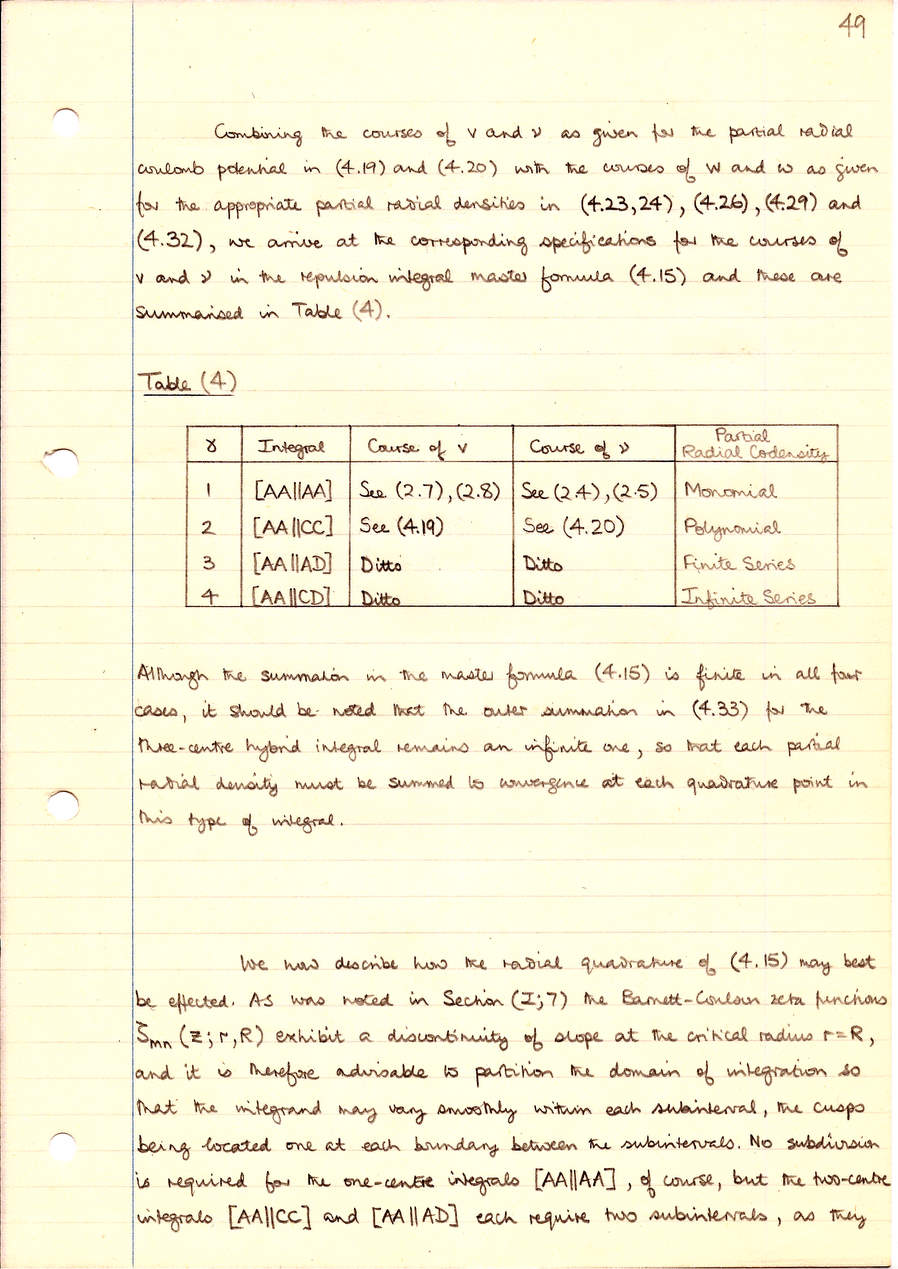 49
Combining the courses of v and ν as given for the partial radial
coulomb potential in (4.19) and (4.20) with the courses of W and ω as given
for the appropriate partial radial densities in (4.23,24), (4.26), (4.29) and
(4.32), we arrive at the corresponding specifications for the courses of
v and ν in the repulsion integral master formula (4.15) and these are
summarised in Table (4).
Table (4)
γ Integral Course of v Course of ν Partial Radial Codensity
1 [AA||AA] See (2.7), (2.8) See (2.4), (2.5) Monomial
2 [AA||CC] See (4.19) See (4.20) Polynomial
3 [AA||AD] Ditto Ditto Finite Series
4 [AA||CD] Ditto Ditto Infinite Series
Although the summation in the master formula (4.15) is finite in all four
cases, it should be noted that the outer summation in (4.33) for the
three-centre hybrid integral remains an infinite one, so that each partial
radial density must be summed to convergence at each quadrature point in
this type of integral.
We now describe how the radial quadrature of (4.15) may best
be effected. As was noted in Section (I;7) the Barnett-Coulson zeta functions
ζmn (z; r, R) exhibit a discontinuity of slope at the critical radius r=R,
and it is therefore advisable to partition the domain of integration so
that the integrand may vary smoothly within each subinterval, the cusps
being located one at each boundary between the subintervals. No subdivision
is required for the one-centre integrals [AA||AA], of course, but the two-centre
integrals [AA||CC] and [AA||AD] each require two subintervals, as they